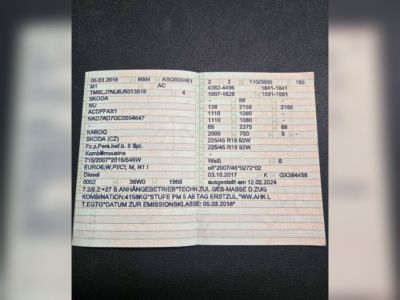 05.03.2018 8004 ASQ000461
M1 AC
TMBLJ7NU6J5013516 4
SKODA
NU
ACDFFAX1
NAD7AD7GC0054647
-
KAROQ
SKODA (CZ)
Fz.z.Pers.bef.b. 8 Spl.
Kombilimousine
715/2007*2016/646W
EURO6;W,PI/CI; M, N1 I
Diesel
0002 36W0 1968
2 2 110/3500 195
4382-4496 1841-1841
1607-1628 1591-1591
- 88
138 2158 2158
1110 1080 -
1110 1080 -
69 2375 68
2000 750 5 -
225/45 R19 92W
225/45 R19 92W
-
Weiß 0
e8*2007/46*0272*02
03.10.2017 K GX384458
ausgestellt am 12.02.2024
7.2/8.2:+27 B.ANHÄNGEBETRIEB*TECHN.ZUL.GES-MASSE D.ZUG
KOMBINATION:4158KG*STUFE PM 5 AB TAG ERSTZUL.*WW.AHK L
T.EGTG*DATUM ZUR EMISSIONSKLASSE: 05.03.2018*